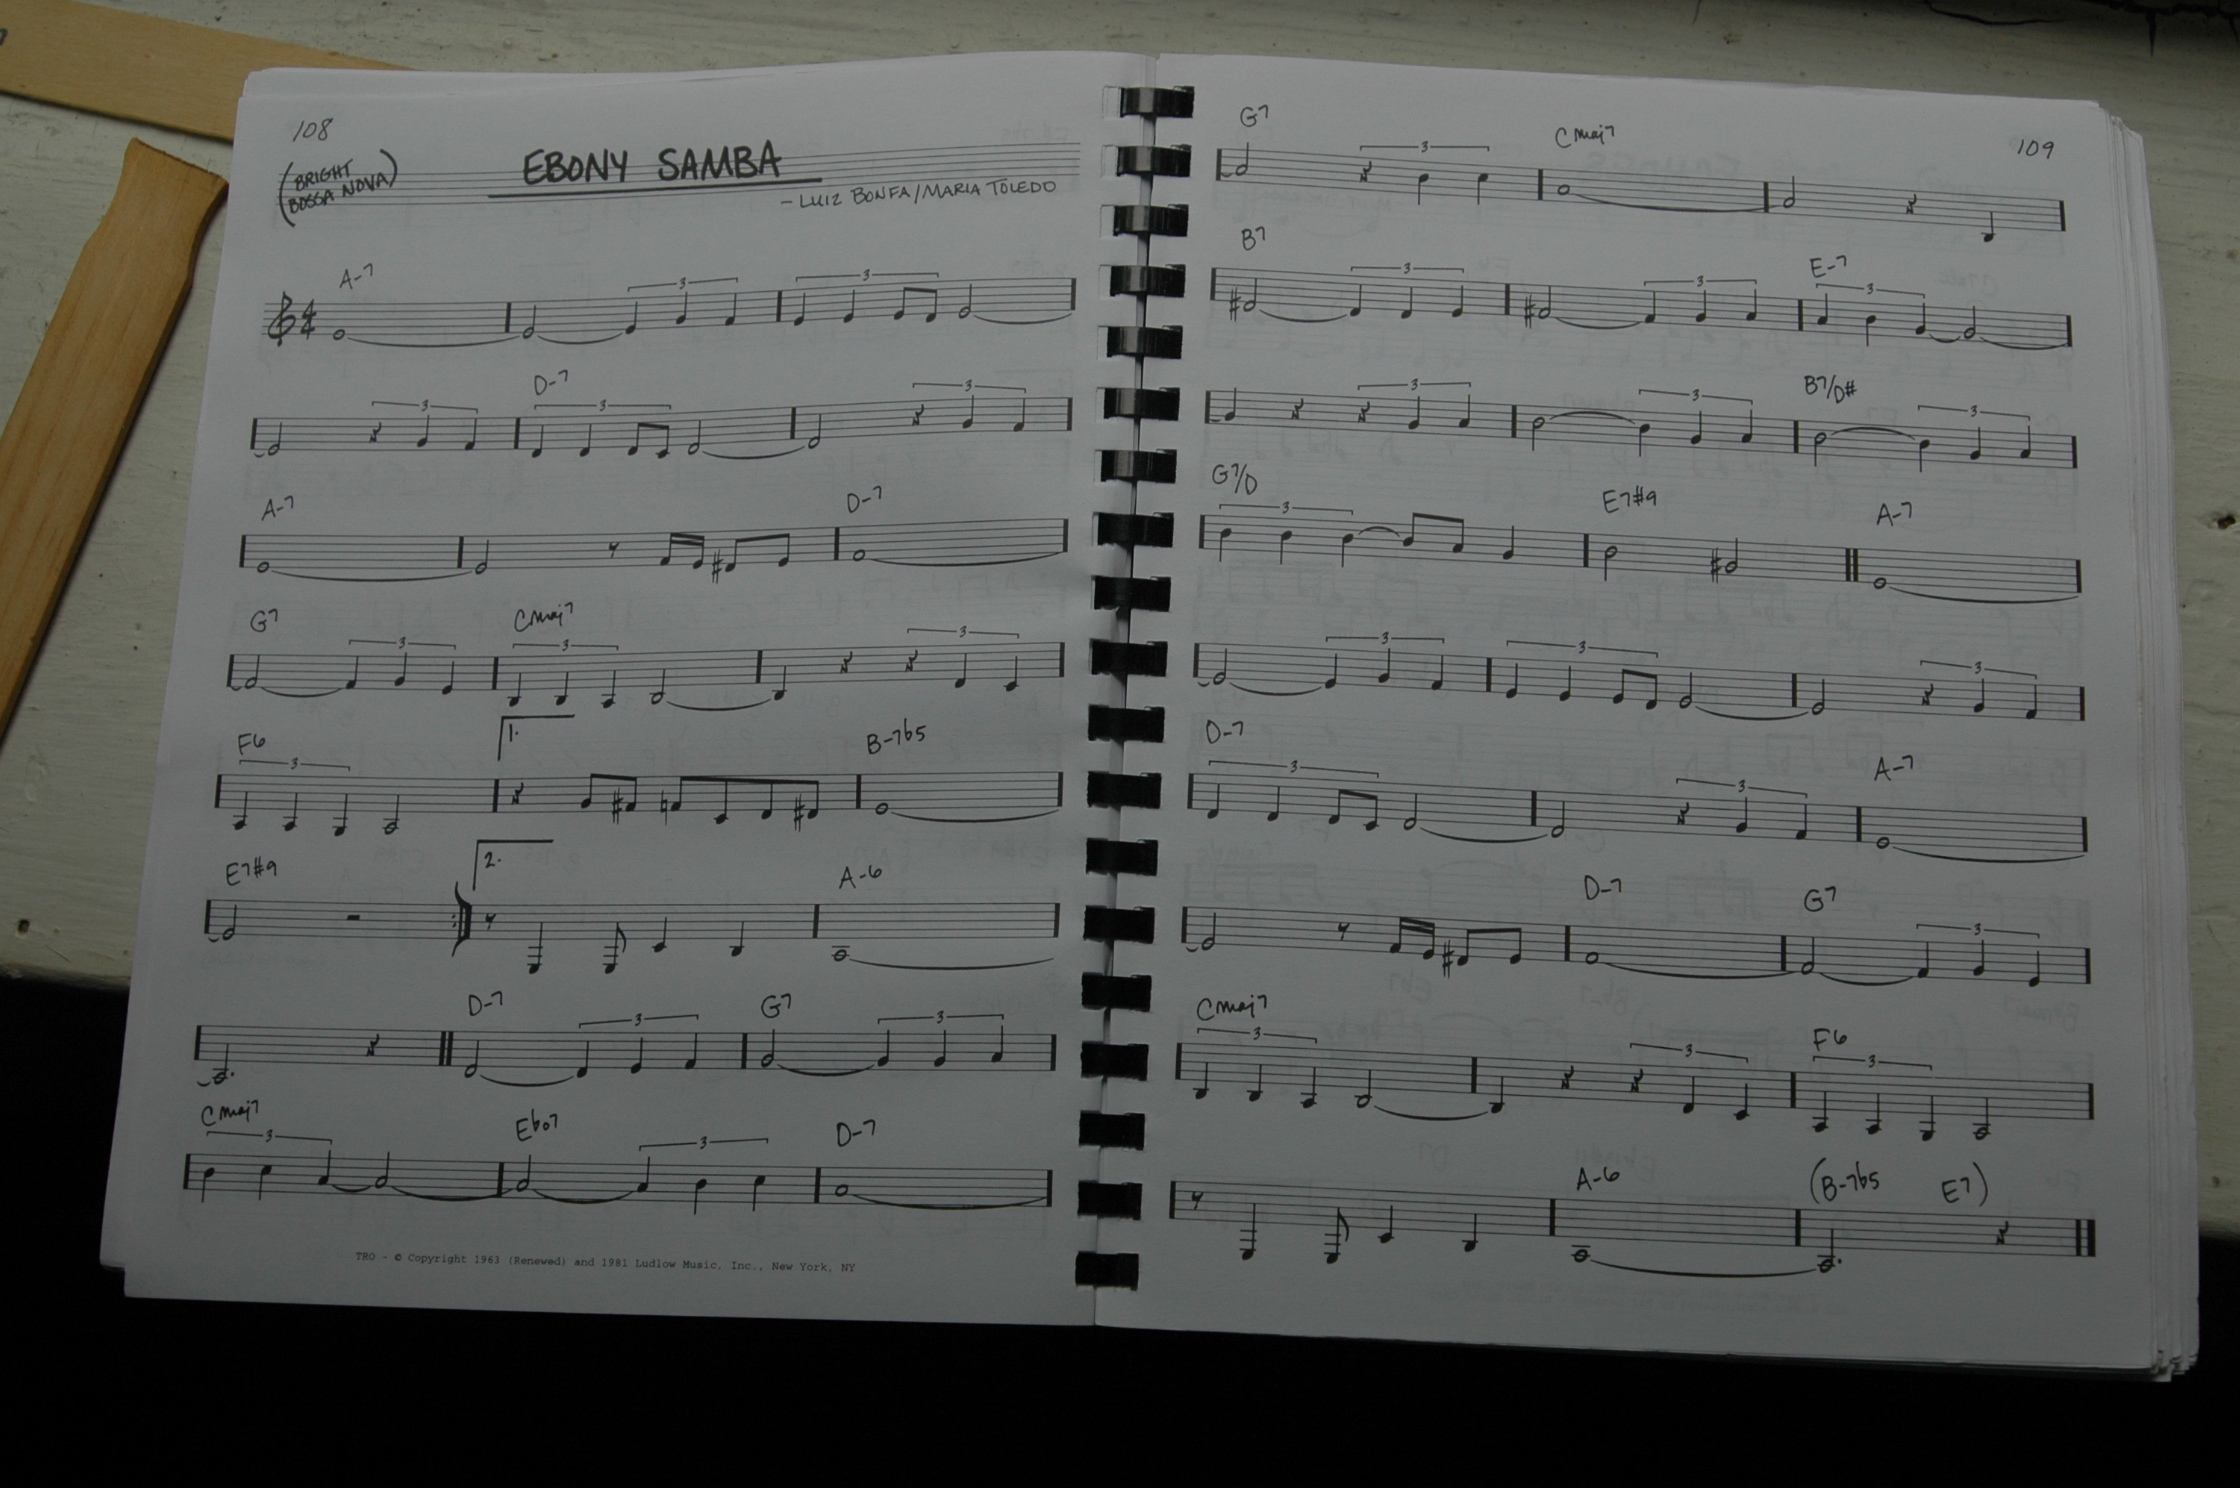 108
(BRIGHT
BOSSA NOVA)
EBONY SAMBA
- LUIZ BONFA/MARIA TOLEDO
A-7
3 3
3 D-7 3 3
A-7 D-7
G7 3 Cmaj7 3 3
F6 3 1. B-7b5
E7#9 2. A-6
D-7 3 G7 3
Cmaj7 3 Ebo7 3 D-7
TRO - © Copyright 1963 (Renewed) and 1981 Ludlow Music, Inc., New York, NY
109
G7 3 Cmaj7
B7 3 3 E-7 3
3 3 B7/D# 3
G7/D 3 E7#9 A-7
3 3 3
D-7 3 3 A-7
D-7 G7 3
Cmaj7 3 3 F6 3
A-6 (B-7b5 E7)